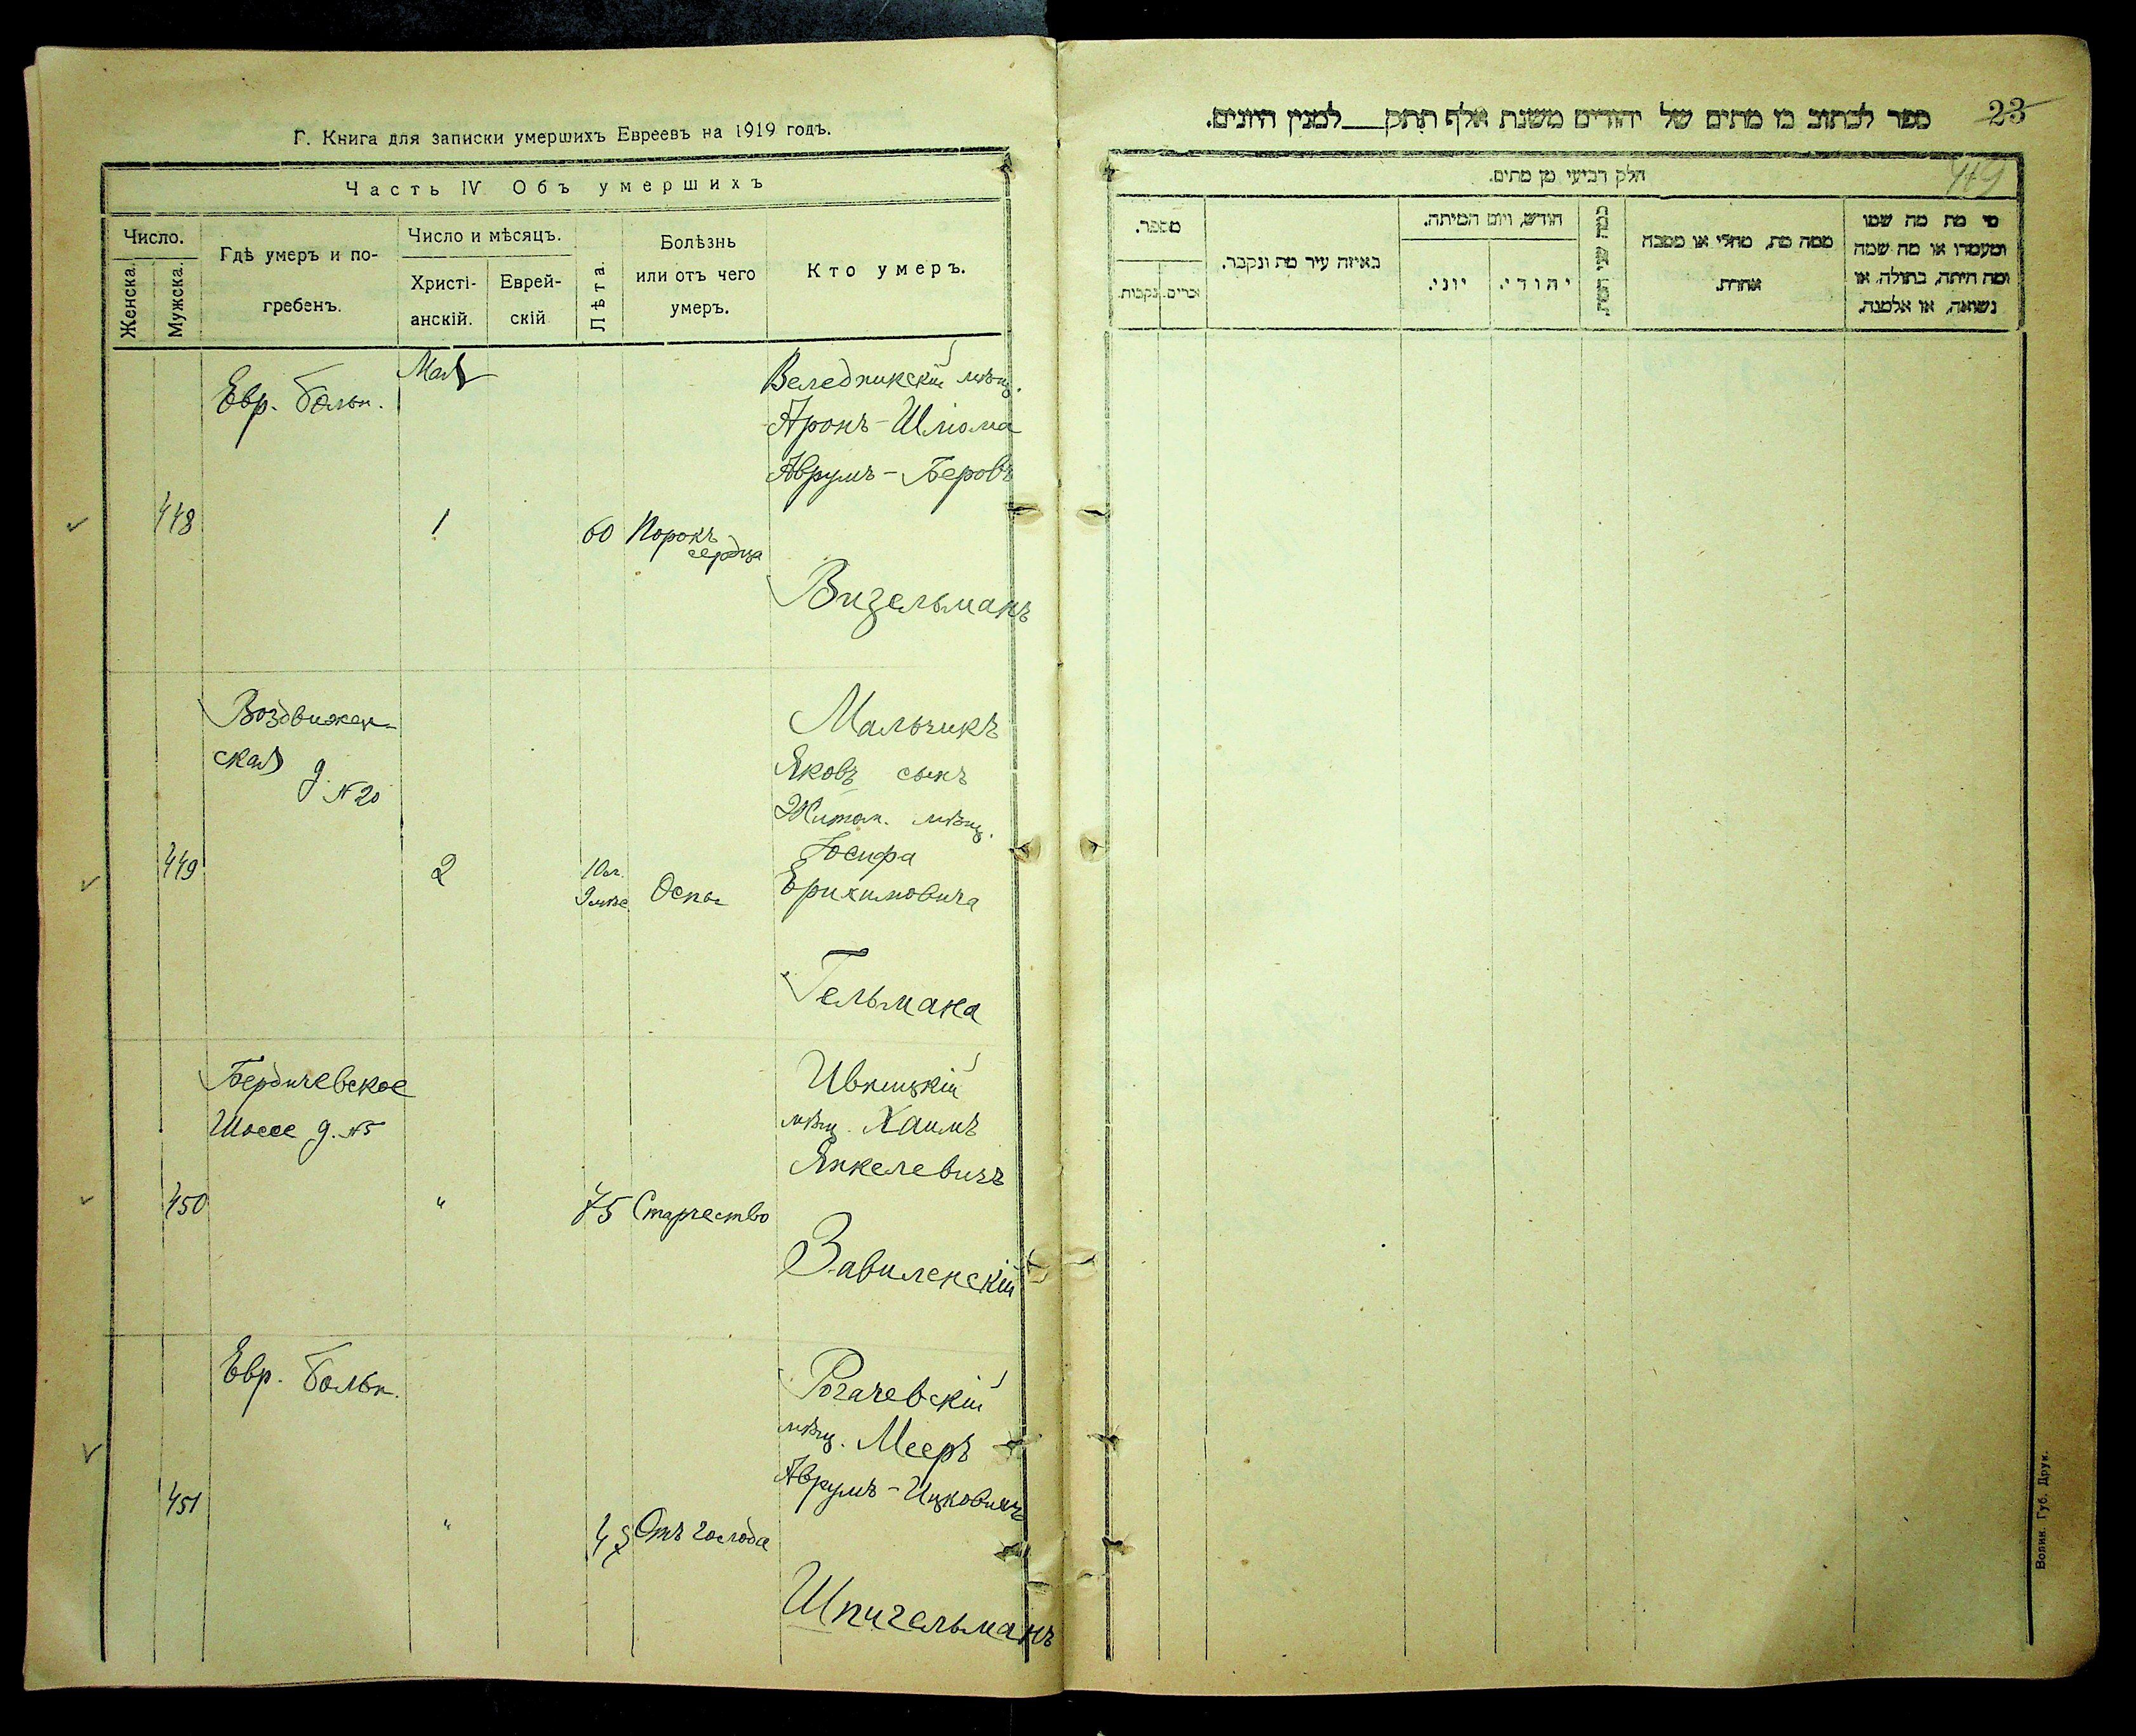 Г. Книга для записки умершихъ Евреевъ на 1919 годъ.
Часть IV Объ умершихъ
Число.
Женска.
Мужска.
Гдѣ умеръ и по-
гребенъ.
Число и мѣсяцъ.
Христі-
анскій.
Еврей-
скій
Лѣта.
Болѣзнь
или отъ чего
умеръ.
Кто умеръ.
Май
Евр. больн.
448
1
60
Порокъ
сердца
Веледникскій мѣщ.
Аронъ-Шліома
Аврумъ-Беровъ
Визельманъ
Воздвижен-
ская д. № 20
449
2
10 л.
9 мѣс
Оспа
Мальчикъ
Яковъ сынъ
Житом. мѣщ.
Іосифа
Ерихимовича
Гельмана
Бердичевское
Шоссе д. № 5
450
"
75
Старчество
Ивницкій
мѣщ. Хаимъ
Янкелевичъ
Завиленскій
Евр. больн.
451
"
Отъ голода
Рогачевскій
мѣщ. Мееръ
Аврумъ-Ицковичъ
Шпигельманъ
23
ספר לכתוב מן מתים של יהודים משנת אלף תתק__למנין היונים.
449
חלק רביעי מן מתים.
מי מת מה שמו
ומעמדו או מה שמה
ומה היתה, בתולה, או
נשואה, או אלמנה.
ממה מת, מחלי או מסבה
אחרת.
חודש, ויום המיתה.
יהודי.
יוני.
באיזה עיר מת ונקבר.
מספר.
זכרים.
נקבות.
Волин. Губ. Друк.